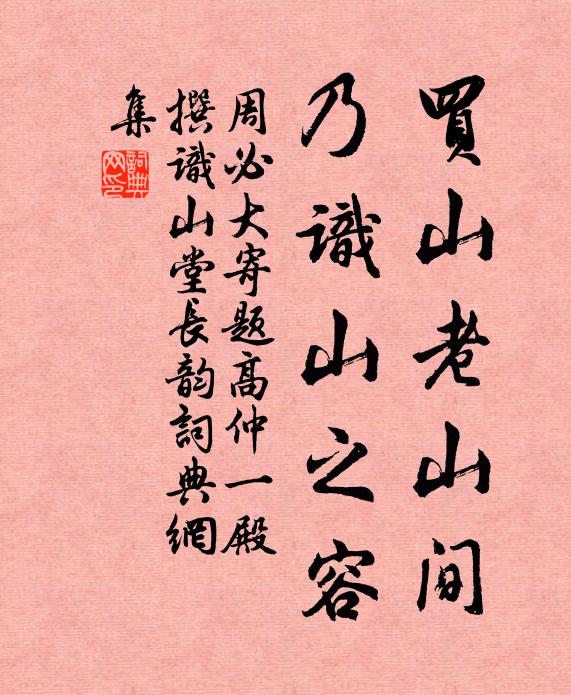 買山老山间
乃識山之容
周必大寄题高仲一殿
撰識山堂長韵詞典網
集
詞典
网印